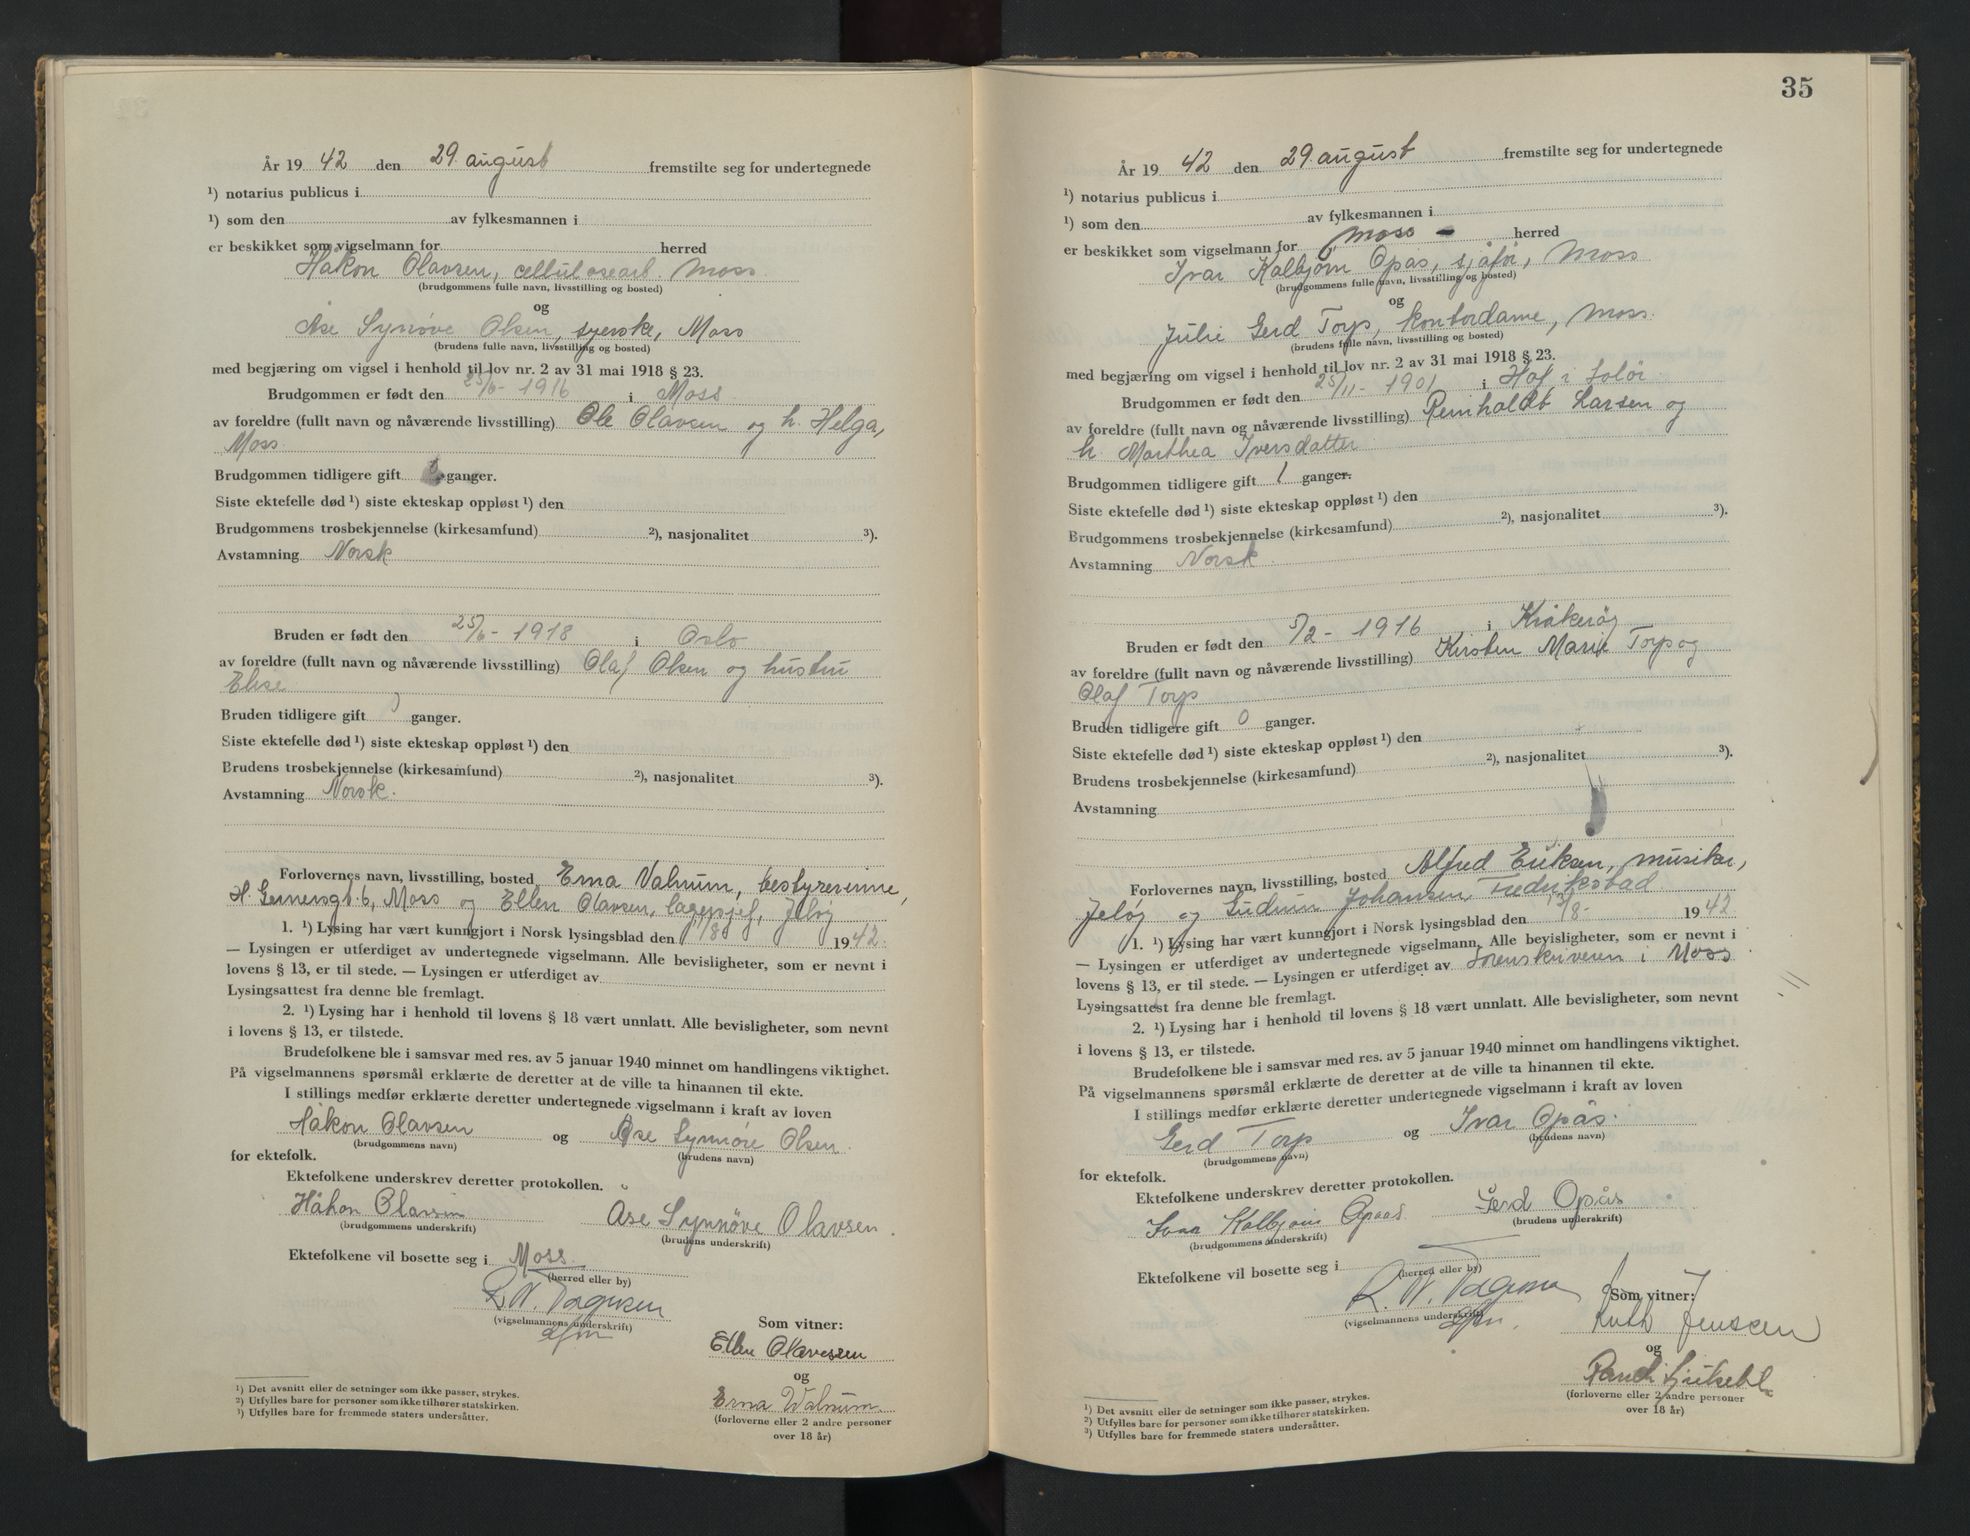 År 19 42 den 29. august fremstilte seg for undertegnede
¹) notarius publicus i
¹) som den av fylkesmannen i
er beskikket som vigselmann for herred
Håkon Olavsen, cellulosearb. Moss
(brudgommens fulle navn, livsstilling og bosted)
og
Åse Synnøve Olsen, syerske, Moss
(brudens fulle navn, livsstilling og bosted)
med begjæring om vigsel i henhold til lov nr. 2 av 31 mai 1918 § 23.
Brudgommen er født den 1916 i Moss
av foreldre (fullt navn og nåværende livsstilling) Ole Olavsen og h. Helga,
Moss.
Brudgommen tidligere gift ganger.
Siste ektefelle død ¹) siste ekteskap oppløst ¹) den
Brudgommens trosbekjennelse (kirkesamfund) ²), nasjonalitet ³).
Avstamning Norsk
Bruden er født den 25/6 - 1918 i Oslo
av foreldre (fullt navn og nåværende livsstilling) Olaf Olsen og hustru
Elise
Bruden tidligere gift 0 ganger.
Siste ektefelle død ¹) siste ekteskap oppløst ¹) den
Brudens trosbekjennelse (kirkesamfund) ²), nasjonalitet ³).
Avstamning Norsk.
Forlovernes navn, livsstilling, bosted Erna Walnum, bestyrerinne,
6, Moss og Ellen Olavsen, lagersjef, Jeløy
1. ¹) Lysing har vært kunngjort i Norsk lysingsblad den /8 1942.
— Lysingen er utferdiget av undertegnede vigselmann. Alle bevisligheter, som er nevnt i
lovens § 13, er til stede. — Lysingen er utferdiget av
Lysingsattest fra denne ble fremlagt.
2. ¹) Lysing har i henhold til lovens § 18 vært unnlatt. Alle bevisligheter, som nevnt
i lovens § 13, er tilstede.
Brudefolkene ble i samsvar med res. av 5 januar 1940 minnet om handlingens viktighet.
På vigselmannens spørsmål erklærte de deretter at de ville ta hinannen til ekte.
I stillings medfør erklærte deretter undertegnede vigselmann i kraft av loven
Håkon Olavsen og Åse Synnøve Olsen.
(brudgommens navn) (brudens navn)
for ektefolk.
Ektefolkene underskrev deretter protokollen.
Håkon Olavsen Åse Synnøve Olavsen.
(brudgommens underskrift) (brudens underskrift)
Ektefolkene vil bosette seg i Moss.
(herred eller by)
(vigselmannens underskrift)
Som vitner:
Ellen Olavesen
og
Erna Walnum.
(forloverne eller 2 andre personer
over 18 år)
¹) Det avsnitt eller de setninger som ikke passer, strykes.
²) Utfylles bare for personer som ikke tilhører statskirken.
³) Utfylles bare for fremmede staters undersåtter.
35
År 19 42 den 29. august fremstilte seg for undertegnede
¹) notarius publicus i
¹) som den av fylkesmannen i
er beskikket som vigselmann for Moss - herred
Ivar Kolbjørn Opås, sjåfør, Moss
(brudgommens fulle navn, livsstilling og bosted)
og
Julie Gerd Torp, kontordame, Moss.
(brudens fulle navn, livsstilling og bosted)
med begjæring om vigsel i henhold til lov nr. 2 av 31 mai 1918 § 23.
Brudgommen er født den 25/11 - 1901 i Hof i Solør.
av foreldre (fullt navn og nåværende livsstilling) Reinholdt Larsen og
h. Marthea Iversdatter
Brudgommen tidligere gift 1 ganger.
Siste ektefelle død ¹) siste ekteskap oppløst ¹) den
Brudgommens trosbekjennelse (kirkesamfund) ²), nasjonalitet ³).
Avstamning Norsk.
Bruden er født den 5/2 - 1916 i Kråkerøy
av foreldre (fullt navn og nåværende livsstilling) Kirsten Marie Torp og
Olaf Torp
Bruden tidligere gift 0 ganger.
Siste ektefelle død ¹) siste ekteskap oppløst ¹) den
Brudens trosbekjennelse (kirkesamfund) ²), nasjonalitet ³).
Avstamning
Forlovernes navn, livsstilling, bosted Alfred Eriksen, musiker,
Jeløy og Gudrun Johansen, Fredrikstad
1. ¹) Lysing har vært kunngjort i Norsk lysingsblad den /8 - 1942
— Lysingen er utferdiget av undertegnede vigselmann. Alle bevisligheter, som er nevnt i
lovens § 13, er til stede. — Lysingen er utferdiget av Sorenskriveren i Moss
Lysingsattest fra denne ble fremlagt.
2. ¹) Lysing har i henhold til lovens § 18 vært unnlatt. Alle bevisligheter, som nevnt
i lovens § 13, er tilstede.
Brudefolkene ble i samsvar med res. av 5 januar 1940 minnet om handlingens viktighet.
På vigselmannens spørsmål erklærte de deretter at de ville ta hinannen til ekte.
I stillings medfør erklærte deretter undertegnede vigselmann i kraft av loven
Gerd Torp og Ivar Opås.
(brudgommens navn) (brudens navn)
for ektefolk.
Ektefolkene underskrev deretter protokollen.
Ivar Kolbjørn Opaas Gerd Opås
(brudgommens underskrift) (brudens underskrift)
Ektefolkene vil bosette seg i
(herred eller by)
(vigselmannens underskrift)
Som vitner:
Ruth Jenssen
og
Randi
(forloverne eller 2 andre personer
over 18 år)
¹) Det avsnitt eller de setninger som ikke passer, strykes.
²) Utfylles bare for personer som ikke tilhører statskirken.
³) Utfylles bare for fremmede staters undersåtter.